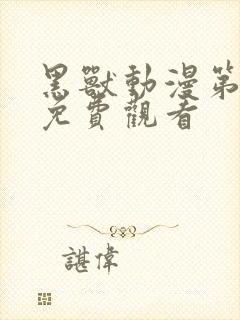 黑獸動漫第
免費觀看
諶偉